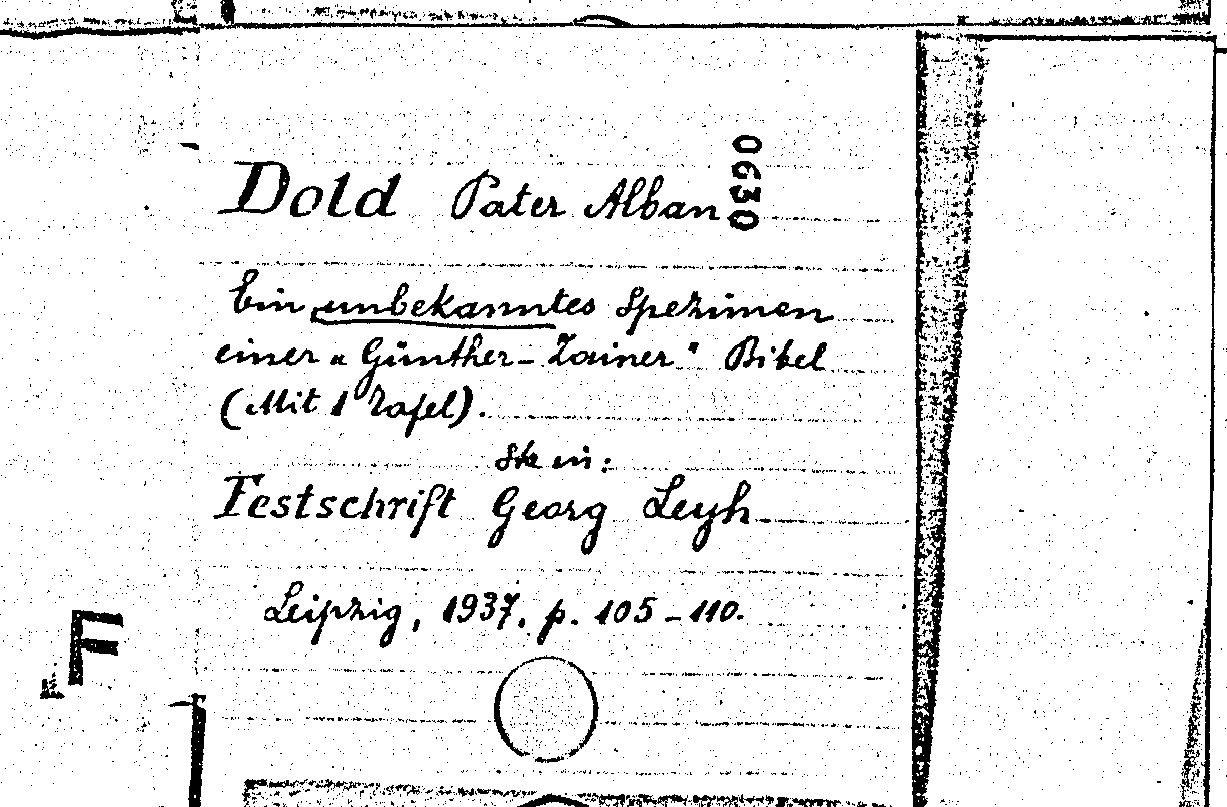 0630
Dold Pater Alban
Ein unbekanntes Spezimen
einer „Günther-Zainer" Bibel
(Mit 1 Tafel).
in:
Festschrift Georg Leyh
Leipzig, 1937, p. 105-110.
F